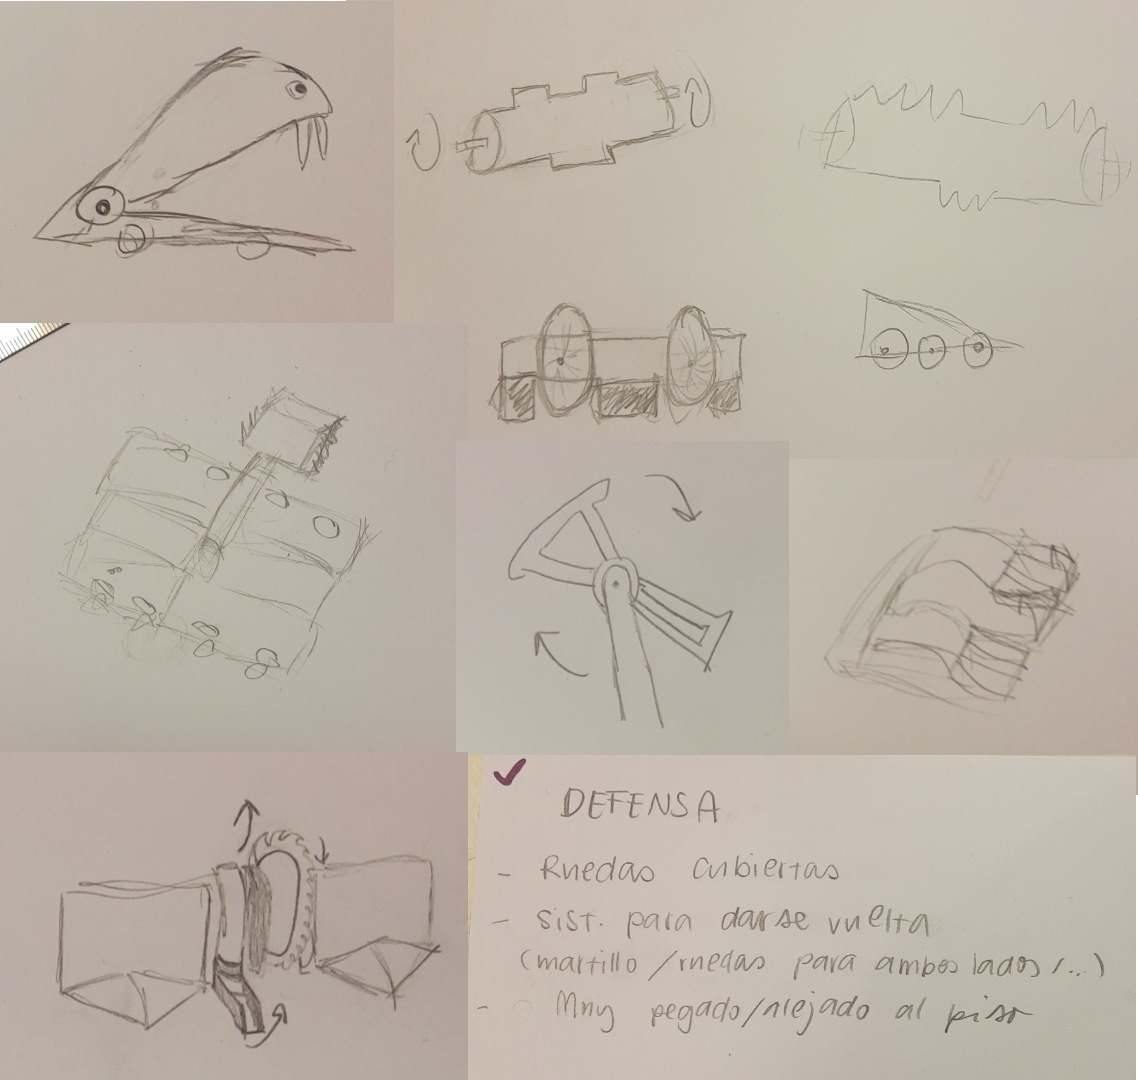 DEFENSA
- Ruedas cubiertas
- sist. para darse vuelta
(martillo/ruedas para ambos lados/...)
- Muy pegado/alejado al piso